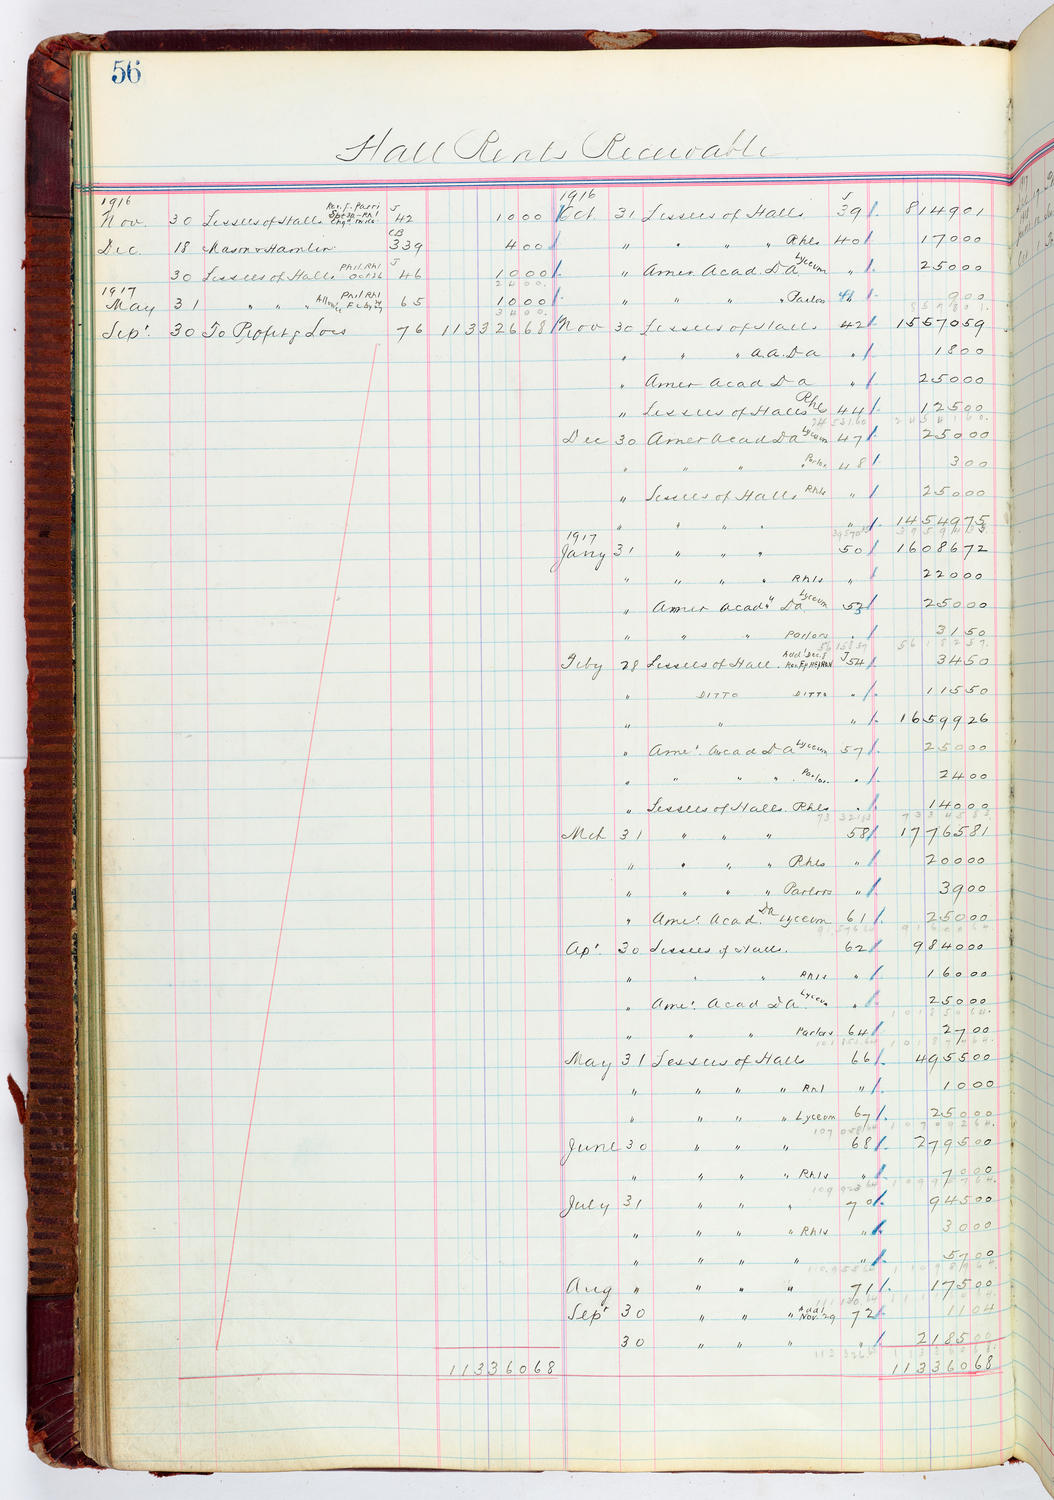 56
Hall Rents Receivable
1916
Nov. 30 Lessees of Halls J 42 1000
CB
Dec. 18 Mason & Hamlin 339 400
J
30 Lessees of Halls Phil. Rhl Oct 26 46 1000
2400.
1917
May 31 " " " Phil Rhl 65 1000
3400.
Sep'. 30 To Profit & Loss 76 11332668
11336068
1916 J
Oct. 31 Lessees of Halls 39 814901
" " " " Rhls 40 17000
" Amer. Acad. Da Lyceum " 25000
" " " " Parlor 41 900
857801.
Nov 30 Lessees of Halls 42 1557059
" " " a.a. Da " 1800
" Amer Acad Da " 25000
" Lessees of Halls Rhl 44 12500
2454160.
Dec 30 Amer Acad Da Lyceum 47 25000
" " " Parlor 48 300
" Lessees of Halls Rhls " 25000
" " " " " 1454975
1917
Jany 31 " " " 50 1608672
" " " " Rhls " 22000
" Amer Acad" Da Lyceum 53 25000
" " " Parlors " 3150
5618257.
Feby 28 Lessees of Hall. J 54 3450
" Ditto Ditto " 11550
" " " 1659926
" Ame'. Acad Da Lyceum 57 25000
" " " " Parlor. " 2400
" Lessees of Halls. Rhls " 14000
7334583.
Mch 31 " " " 58 1776581
" " " " Rhls " 20000
" " " " Parlors " 3900
" Ame'. Acad. Da Lyceum 61 25000
9160064.
Ap'. 30 Lessees of Halls. 62 984000
" " " Rhls " 16000
" Ame'. Acad Da. Lyceum " 25000
10185064.
" " " Parlors 64 2700
10187764.
May 31 Lessees of Halls 66 495500
" " " " Rhl " 1000
" " " " Lyceum 67 25000
10709264.
June 30 " " " 68 279500
" " " " Rhls " 7000
10995764.
July 31 " " " 70 94500
" " " " Rhls " 3000
" " " " " 5700
11098964.
Aug " " " " 71 17500
Sep' 30 " " " Addl Nov. 29 72 1104
30 " " " " 218500
11336068